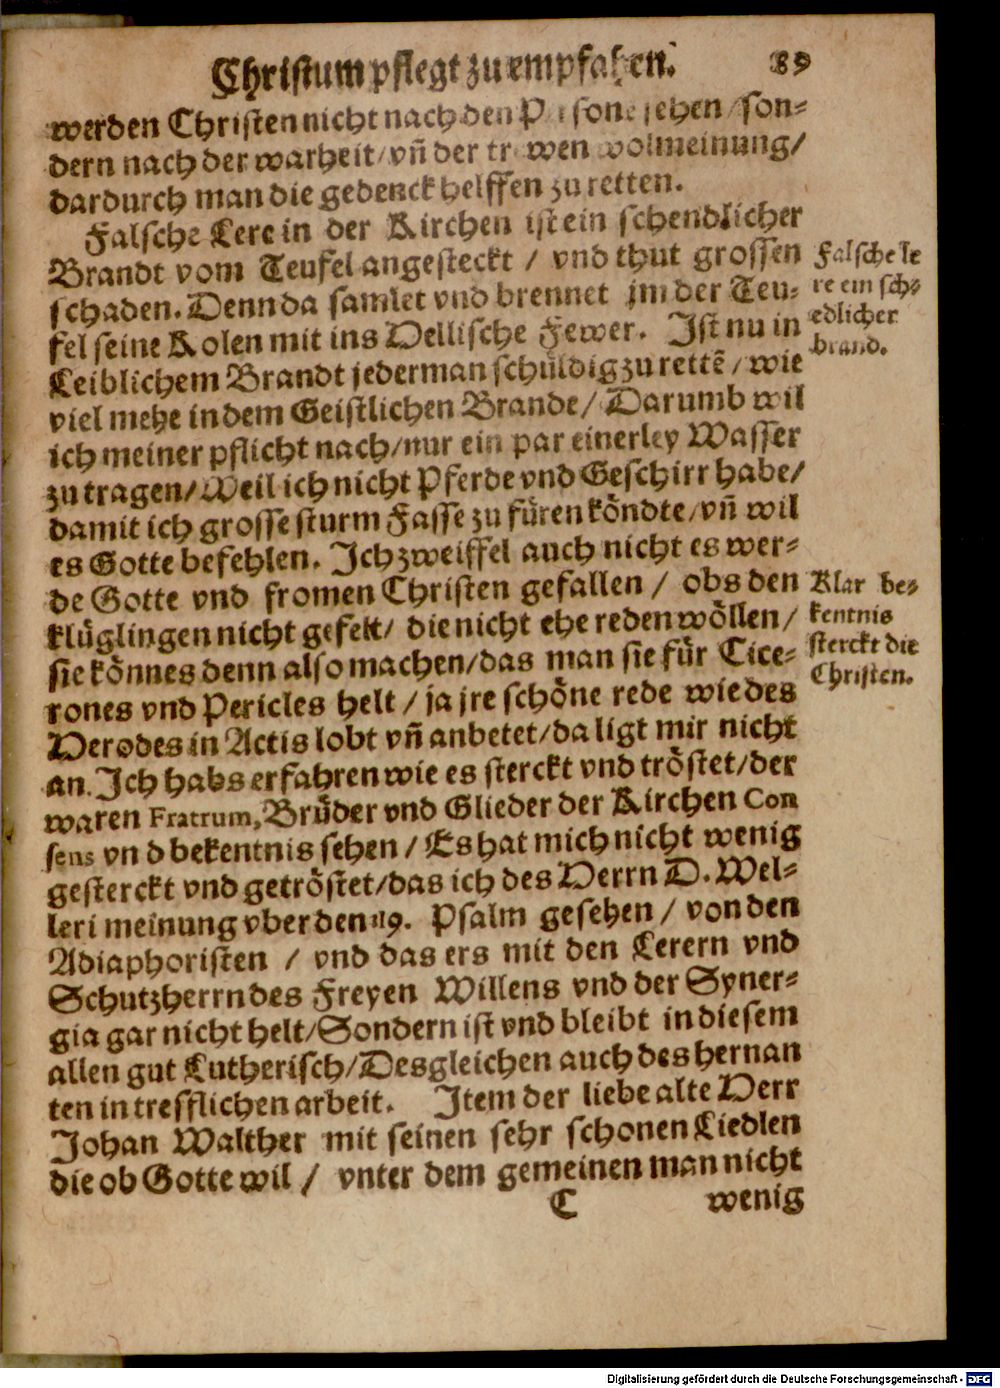 Christum pflegt zu empfahen. 89
werden Christen nicht nach den sehen / son-
dern nach der warheit / vñ der wolmeinung /
dardurch man die gedenckt helffen zu retten.
Falsche Lere in der Kirchen ist ein schendlicher
Brandt vom Teufel angesteckt / vnd thut grossen
schaden. Denn da samlet vnd brennet jm der Teu-
fel seine Kolen mit ins Hellische Fewer. Ist nu in
Leiblichem Brandt jederman schüldig zu rettē / wie
viel mehe in dem Geistlichen Brande / Darumb wil
ich meiner pflicht nach / nur ein par einerley Wasser
zu tragen / Weil ich nicht Pferde vnd Geschirr habe /
damit ich grosse sturm Fasse zu füren köndte / vñ wil
es Gotte befehlen. Ich zweiffel auch nicht es wer-
de Gotte vnd fromen Christen gefallen / obs den
klüglingen nicht gefelt / die nicht ehe reden wöllen /
sie könnes denn also machen / das man sie für Cice-
rones vnd Pericles helt / ja jre schöne rede wie des
Herodes in Actis lobt vñ anbetet / da ligt mir nicht
an. Ich habs erfahren wie es sterckt vnd tröstet / der
waren Fratrum, Brüder vnd Glieder der Kirchen Con
sens vnd bekentnis sehen / Es hat mich nicht wenig
gesterckt vnd getröstet / das ich des Herrn D. Wel-
leri meinung vber den 119. Psalm gesehen / von den
Adiaphoristen / vnd das ers mit den Lerern vnd
Schutzherrn des Freyen Willens vnd der Syner-
gia gar nicht helt / Sondern ist vnd bleibt in diesem
allen gut Lutherisch / Desgleichen auch des hernan
ten in trefflichen arbeit. Item der liebe alte Herr
Johan Walther mit seinen sehr schonen Liedlen
die ob Gotte wil / vnter dem gemeinen man nicht
C wenig
Falsche le
re ein sch-
edlicher
brand.
Klar be-
kentnis
sterckt die
Christen.
Digitalisierung gefördert durch die Deutsche Forschungsgemeinschaft - DFG